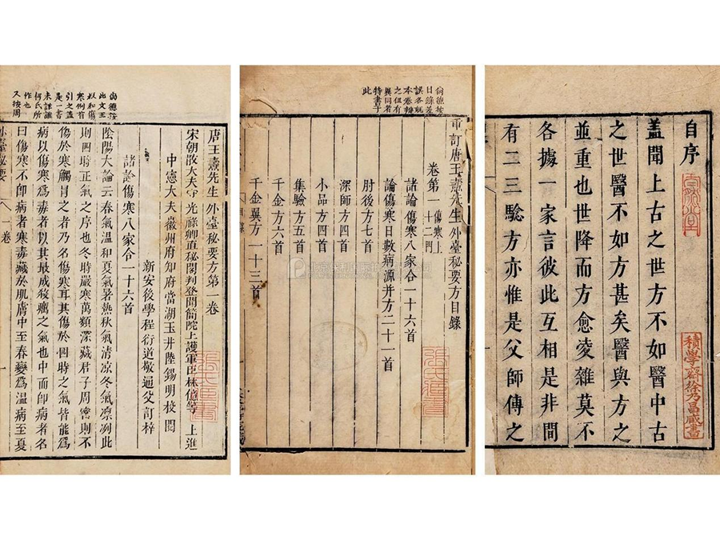 自序
蓋聞上古之世方不如醫中古
之世醫不如方甚矣醫與方之
並重也世降而方愈淩雜莫不
各據一家言彼此互相是非間
有二三驗方亦惟是父師傳之
積學齋徐乃昌藏書
重訂唐王燾先生外臺秘要方目錄
卷第一 傷寒上一十二門
諸論傷寒八家合一十六首
論傷寒日數病源并方二十一首
肘後方七首
深師方四首
小品方四首
集驗方五首
千金方六首
千金翼方一十三首
唐王燾先生外臺秘要方第一卷
宋朝散大夫守光祿卿直秘閣判登聞簡院上護軍臣林億等 上進
中憲大夫徽州府知府當湖玉井陸錫明校閱
新安後學程衍道敬通父訂梓
諸論傷寒八家合一十六首
陰陽大論云春氣溫和夏氣暑熱秋氣清涼冬氣凛冽此
則四時正氣之序也冬時嚴寒萬類深藏君子周密則不
傷於寒觸冒之者乃名傷寒耳其傷於四時之氣皆能爲
病以傷寒爲毒者以其最成殺癘之氣也中而即病者名
曰傷寒不即病者寒毒藏於肌膚中至春變爲溫病至夏
外臺秘要 一卷